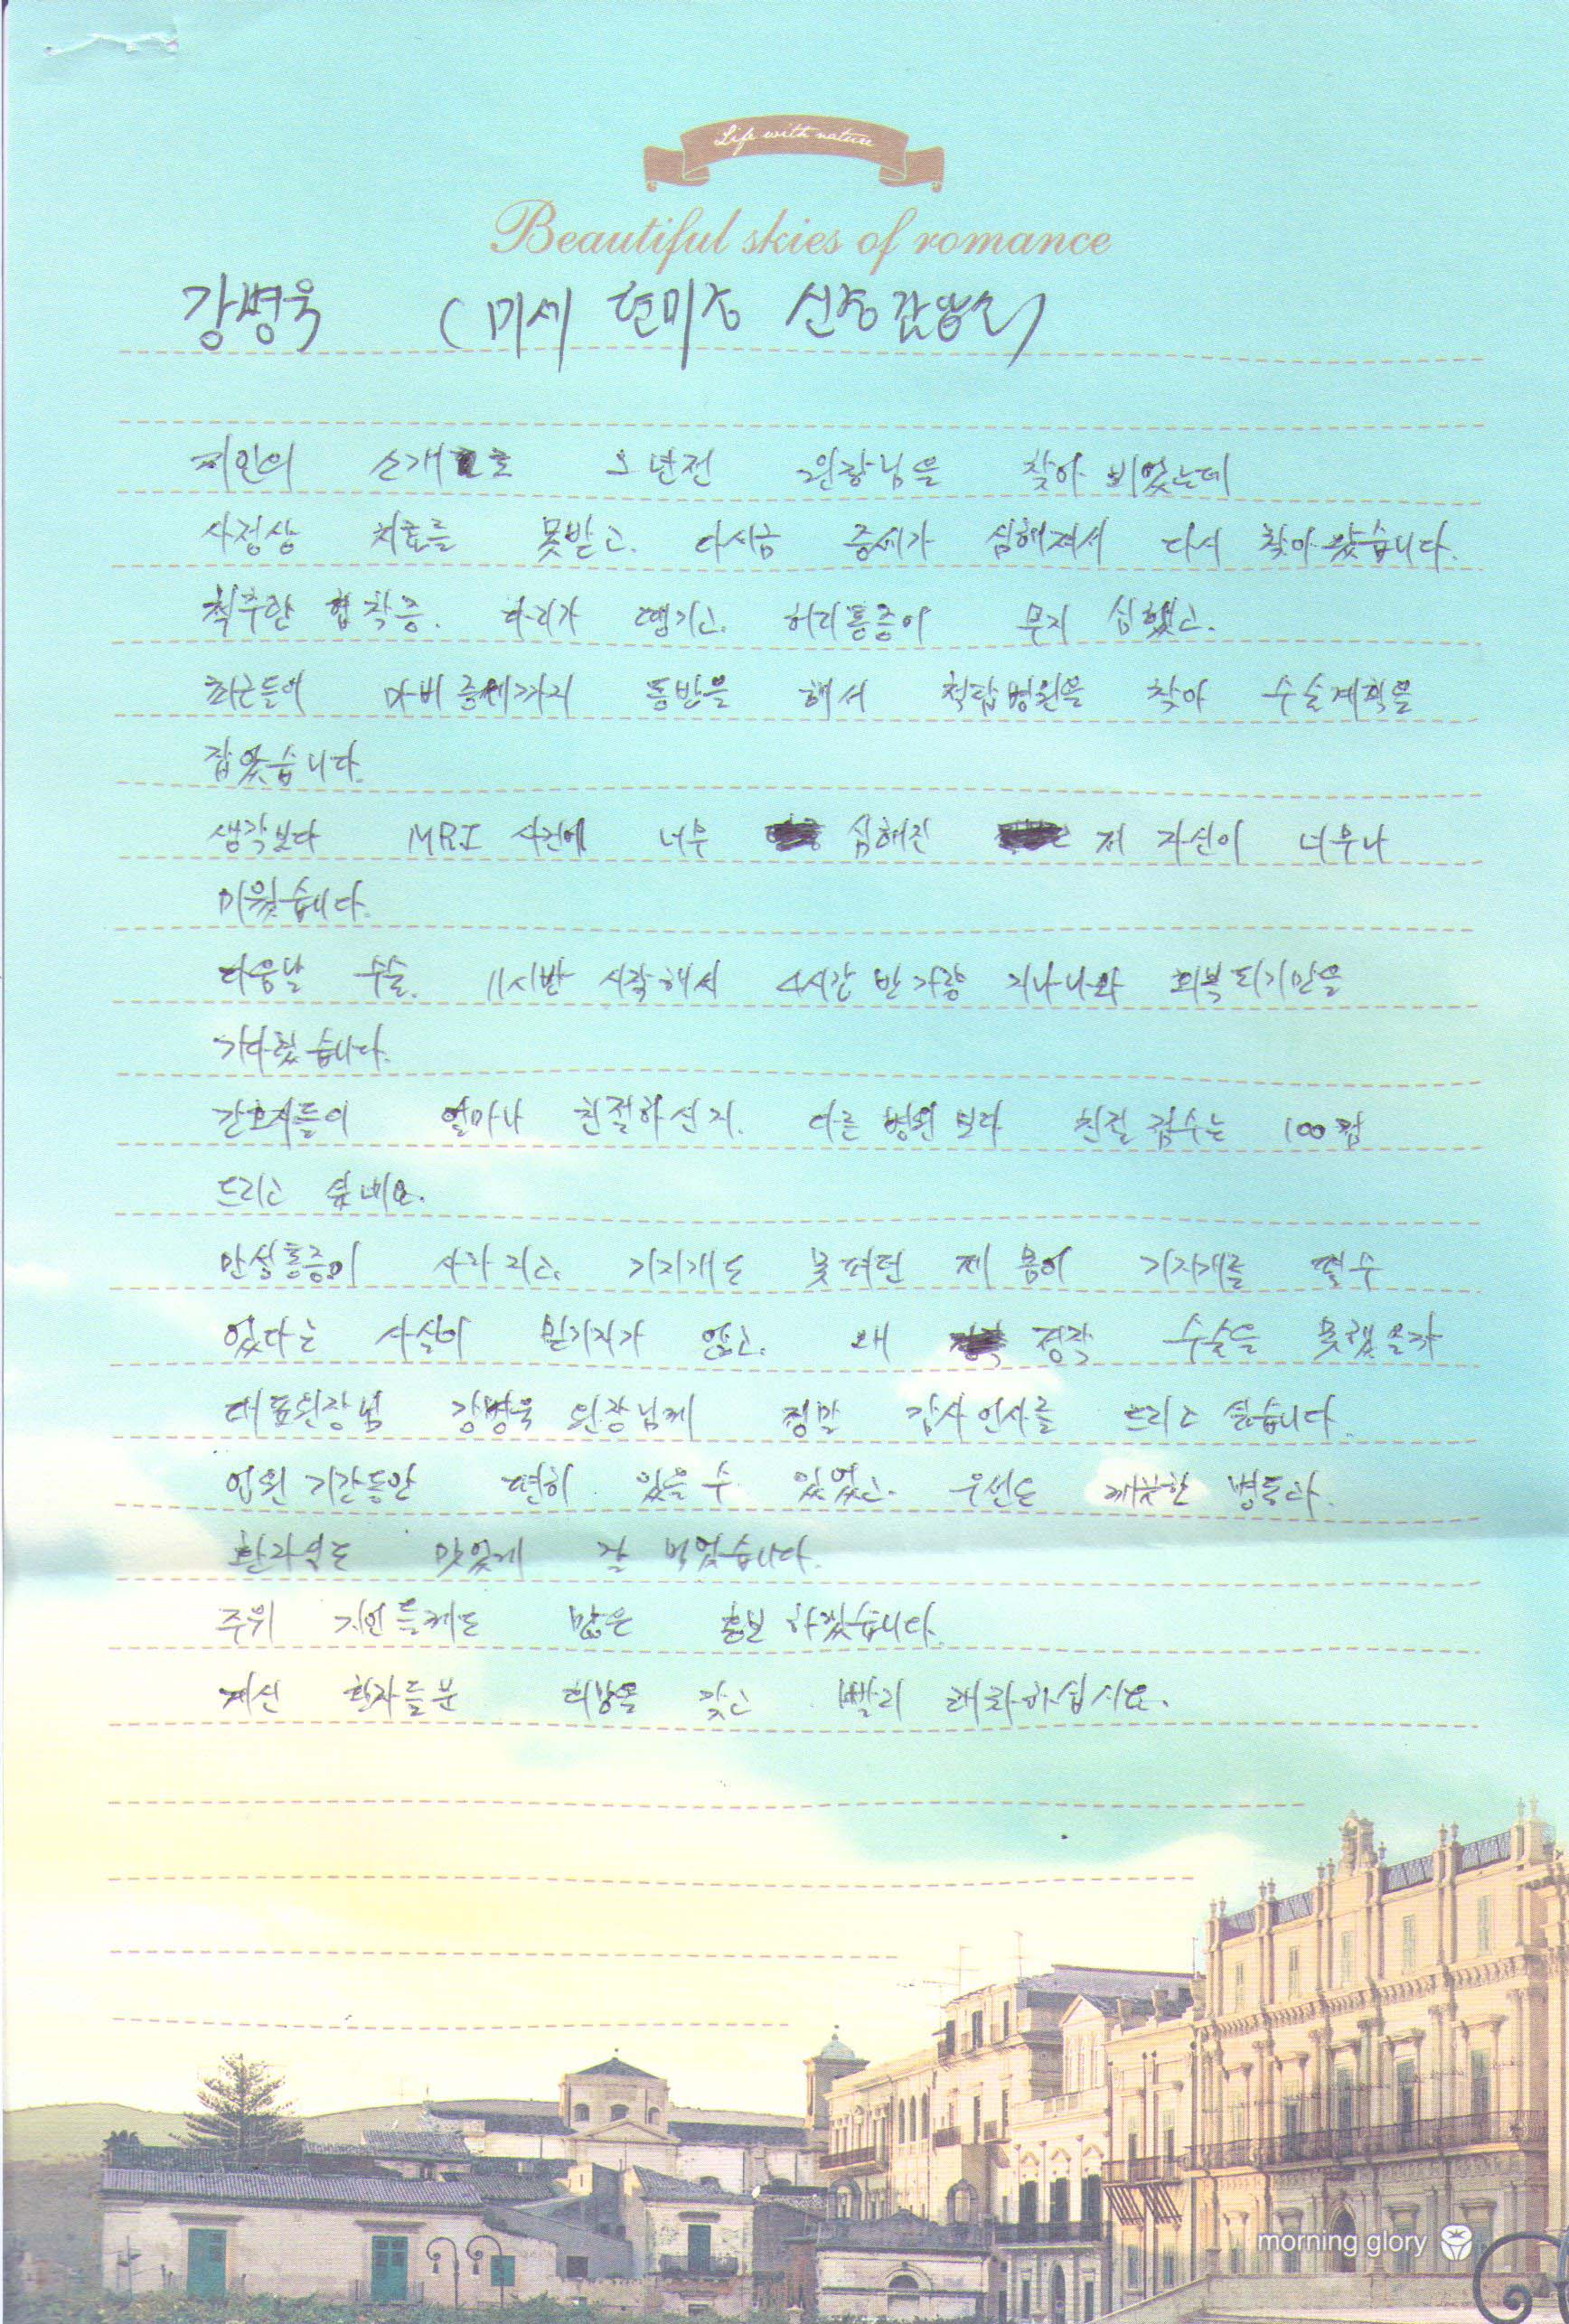 Life with nature
Beautiful skies of romance
강병욱 (미세 현미경 신경감압술)
지인의 소개로 오년전 원장님을 찾아 뵈었는데
사정상 치료를 못받고. 다시금 증세가 심해져서 다시 찾아왔습니다.
척추관 협착증. 다리가 땡기고. 허리통증이 무지 심했고.
최근들에 마비증세까지 동반을 해서 척탑병원을 찾아 수술계획을
잡았습니다.
생각보다 MRI 사진에 너무 심해진 저 자신이 너무나
미웠습니다.
다음날 수술. 11시반 시작해서 4시간 반가량 지나나와 회복되기만을
기다렸습니다.
간호사들이 얼마나 친절하신지. 다른 병원보다 친절점수는 100점
드리고 싶네요.
만성통증이 사라지고. 기지개도 못펴던 제 몸이 기지개를 펼수
있다는 사실이 믿기지가 않고. 왜 정작 수술을 못했을까
대표원장님 강병욱 원장님께 정말 감사인사를 드리고 싶습니다.
입원기간동안 편히 있을수 있었고. 우선은 깨끗한 병동과.
환자식도 맛있게 잘 먹었습니다.
주위 지인들께도 많은 홍보 하겠습니다.
계신 환자들분 희망을 갖고 빨리 쾌차하십시요.
morning glory